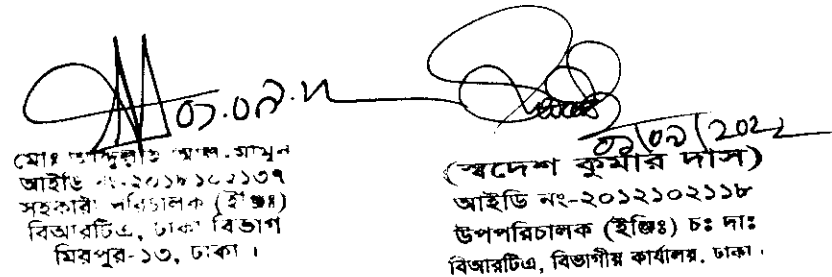 ০১.০৯.২২
মোঃ আব্দুল্লাহ আল-মামুন
আইডি নং-
সহকারী পরিচালক (ইঞ্জিঃ)
বিআরটিএ, ঢাকা বিভাগ
মিরপুর-১৩, ঢাকা ।
/2022
(স্বদেশ কুমার দাস)
আইডি নং-২০১২১০২১১৮
উপপরিচালক (ইঞ্জিঃ) চঃ দাঃ
বিআরটিএ, বিভাগীয় কার্যালয়, ঢাকা ।